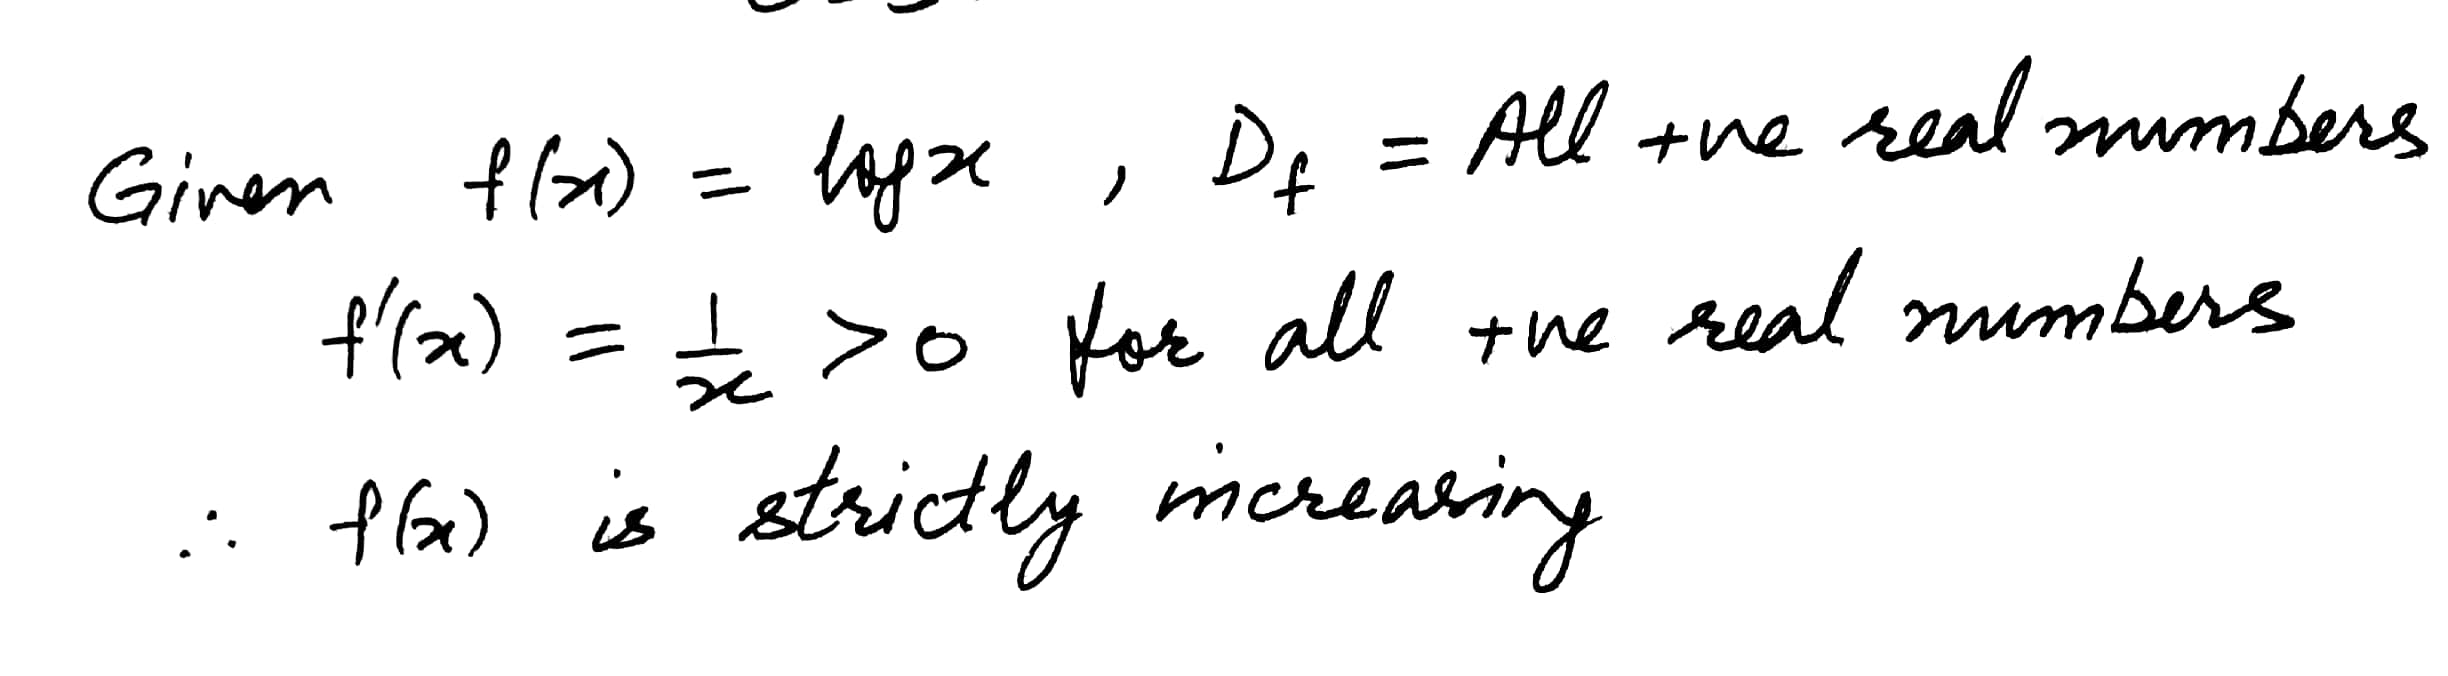 Given f(x) = log x , D_f = All +ve real numbers
f'(x) = 1/x > 0 for all +ve real numbers
∴ f(x) is strictly increasing